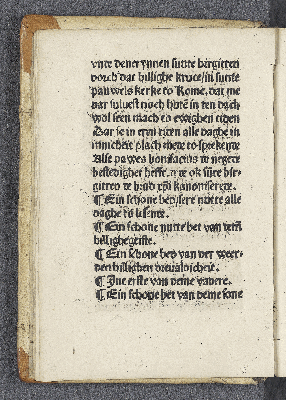 vnde dener ynnen sunte birgitten
dorch dat hillighe kruce/in sunte
pauwels kerke to Rome, dat me
dar suluest noch hute in ten dach
wol seen mach to ewighen tiden
Dar se in eren tiden alle daghe in
innicheit plach mede to sprekende
Alse pawes bonifacius te negede
bestediget heft. vn ok sute bir-
gitten te brud xpi kanoniserete.
¶ Ein schone bedʒere nutte alle
daghe to lesente.
¶ Ein schone nutte bet van dem
hillighe geiste.
¶ Ein schone bed van der weer-
den hillighen dreualdicheit.
¶ Int erste van deme vadere.
¶ Ein schone bet van deme sone